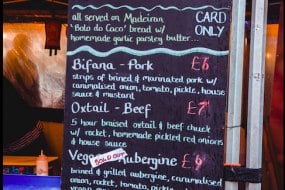 all served on Madeiran CARD
'Bolo do Caco' bread w/ ONLY
homemade garlic parsley butter...
Bifana - Pork £6
strips of brined & marinated pork w/
caramalised onion, tomato, pickle, house
sauce & mustard
Oxtail - Beef £7
5 hour braised oxtail & beef chuck
w/ rocket, homemade pickled red onions
& house sauce
Veg SOLD OUT Aubergine £6
brined & grilled aubergine, caramalised
onion, rocket, tomato, pickle,